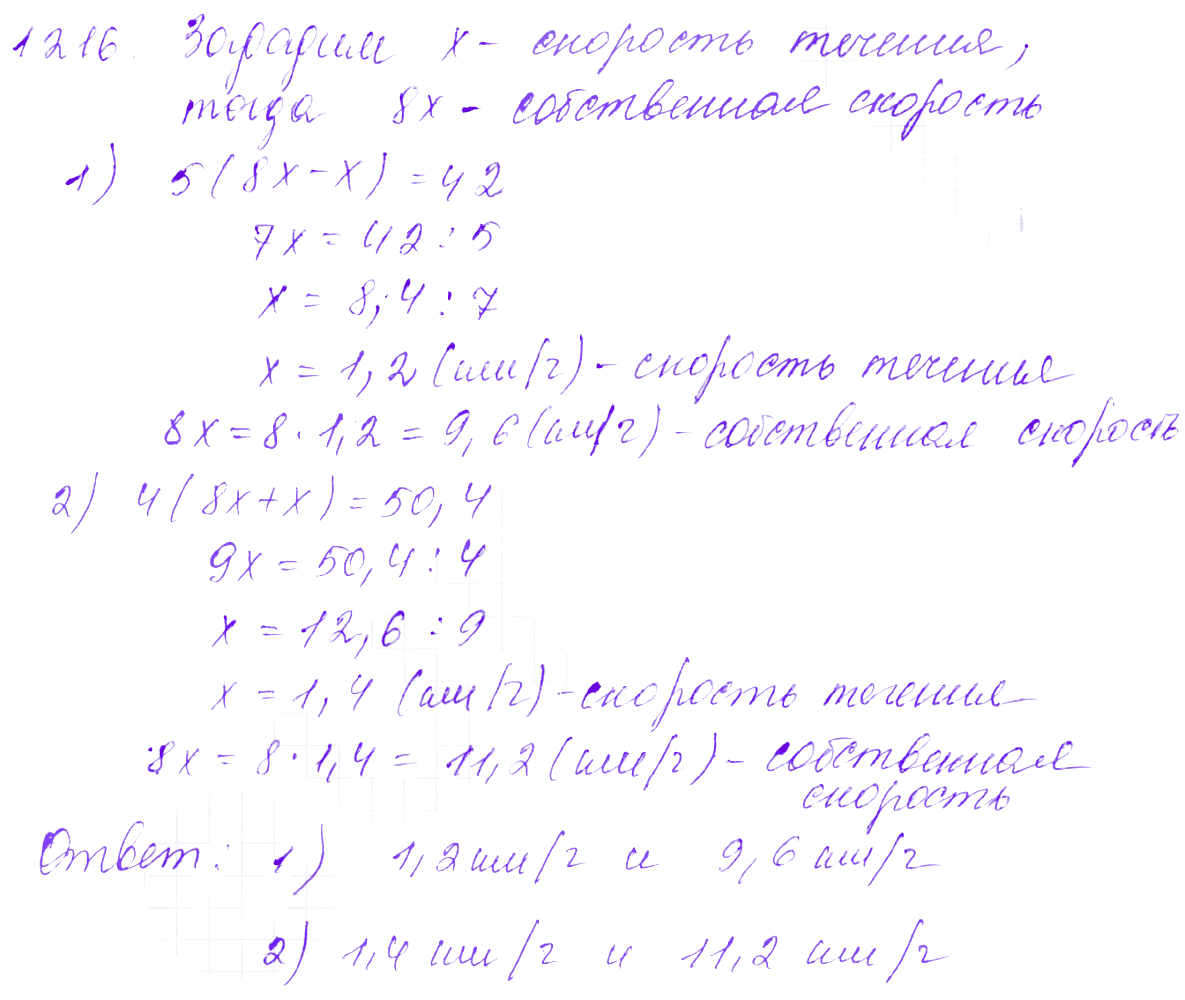 1216. Зададим x - скорость течения,
тогда 8x - собственная скорость
1) 5(8x-x) = 42
7x = 42 : 5
x = 8,4 : 7
x = 1,2 (км/г) - скорость течения
8x = 8 · 1,2 = 9,6 (км/г) - собственная скорость
2) 4(8x+x) = 50,4
9x = 50,4 : 4
x = 12,6 : 9
x = 1,4 (км/г) - скорость течения
8x = 8 · 1,4 = 11,2 (км/г) - собственная
скорость
Ответ: 1) 1,2 км/г и 9,6 км/г
2) 1,4 км/г и 11,2 км/г